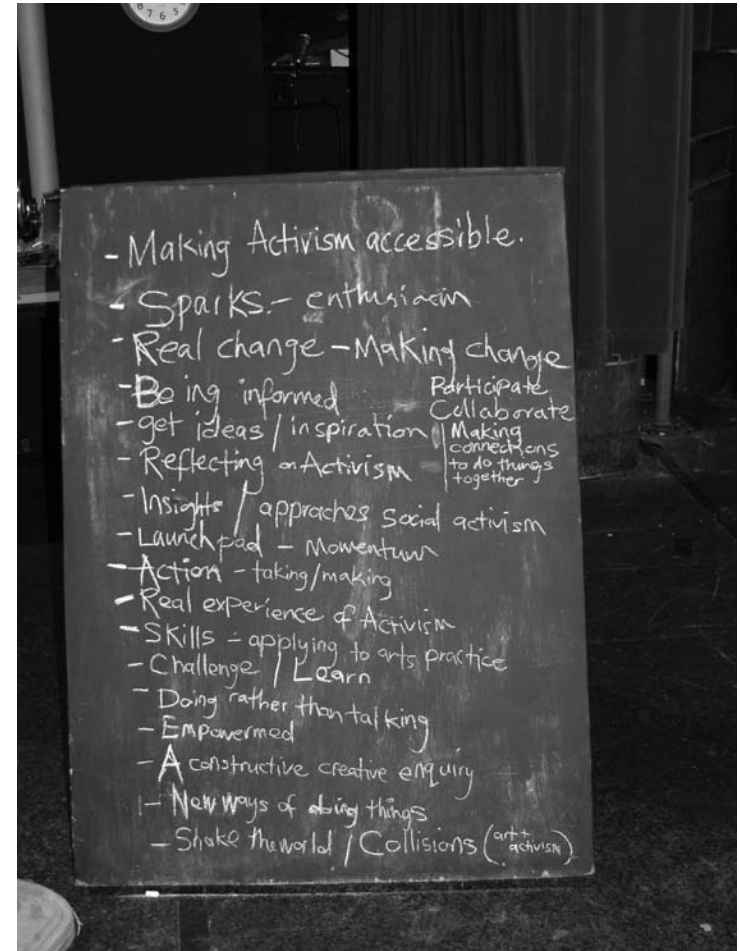 8 7 6 5
- Making Activism accessible.
- Sparks. - enthusiasm
- Real change - Making change
- Being informed
Participate
Collaborate
- get ideas / inspiration
Making
connections
to do things
together
- Reflecting on Activism
- Insights / appraches social activism
- Launchpad - Momentum
- Action - taking/making
- Real experience of Activism
- Skills - applying to arts practice
- Challenge / Learn
- Doing rather than talking
- Empowermed
- A constructive creative enquiry
- New ways of doing things
- Shake the world / Collisions (art + activism)